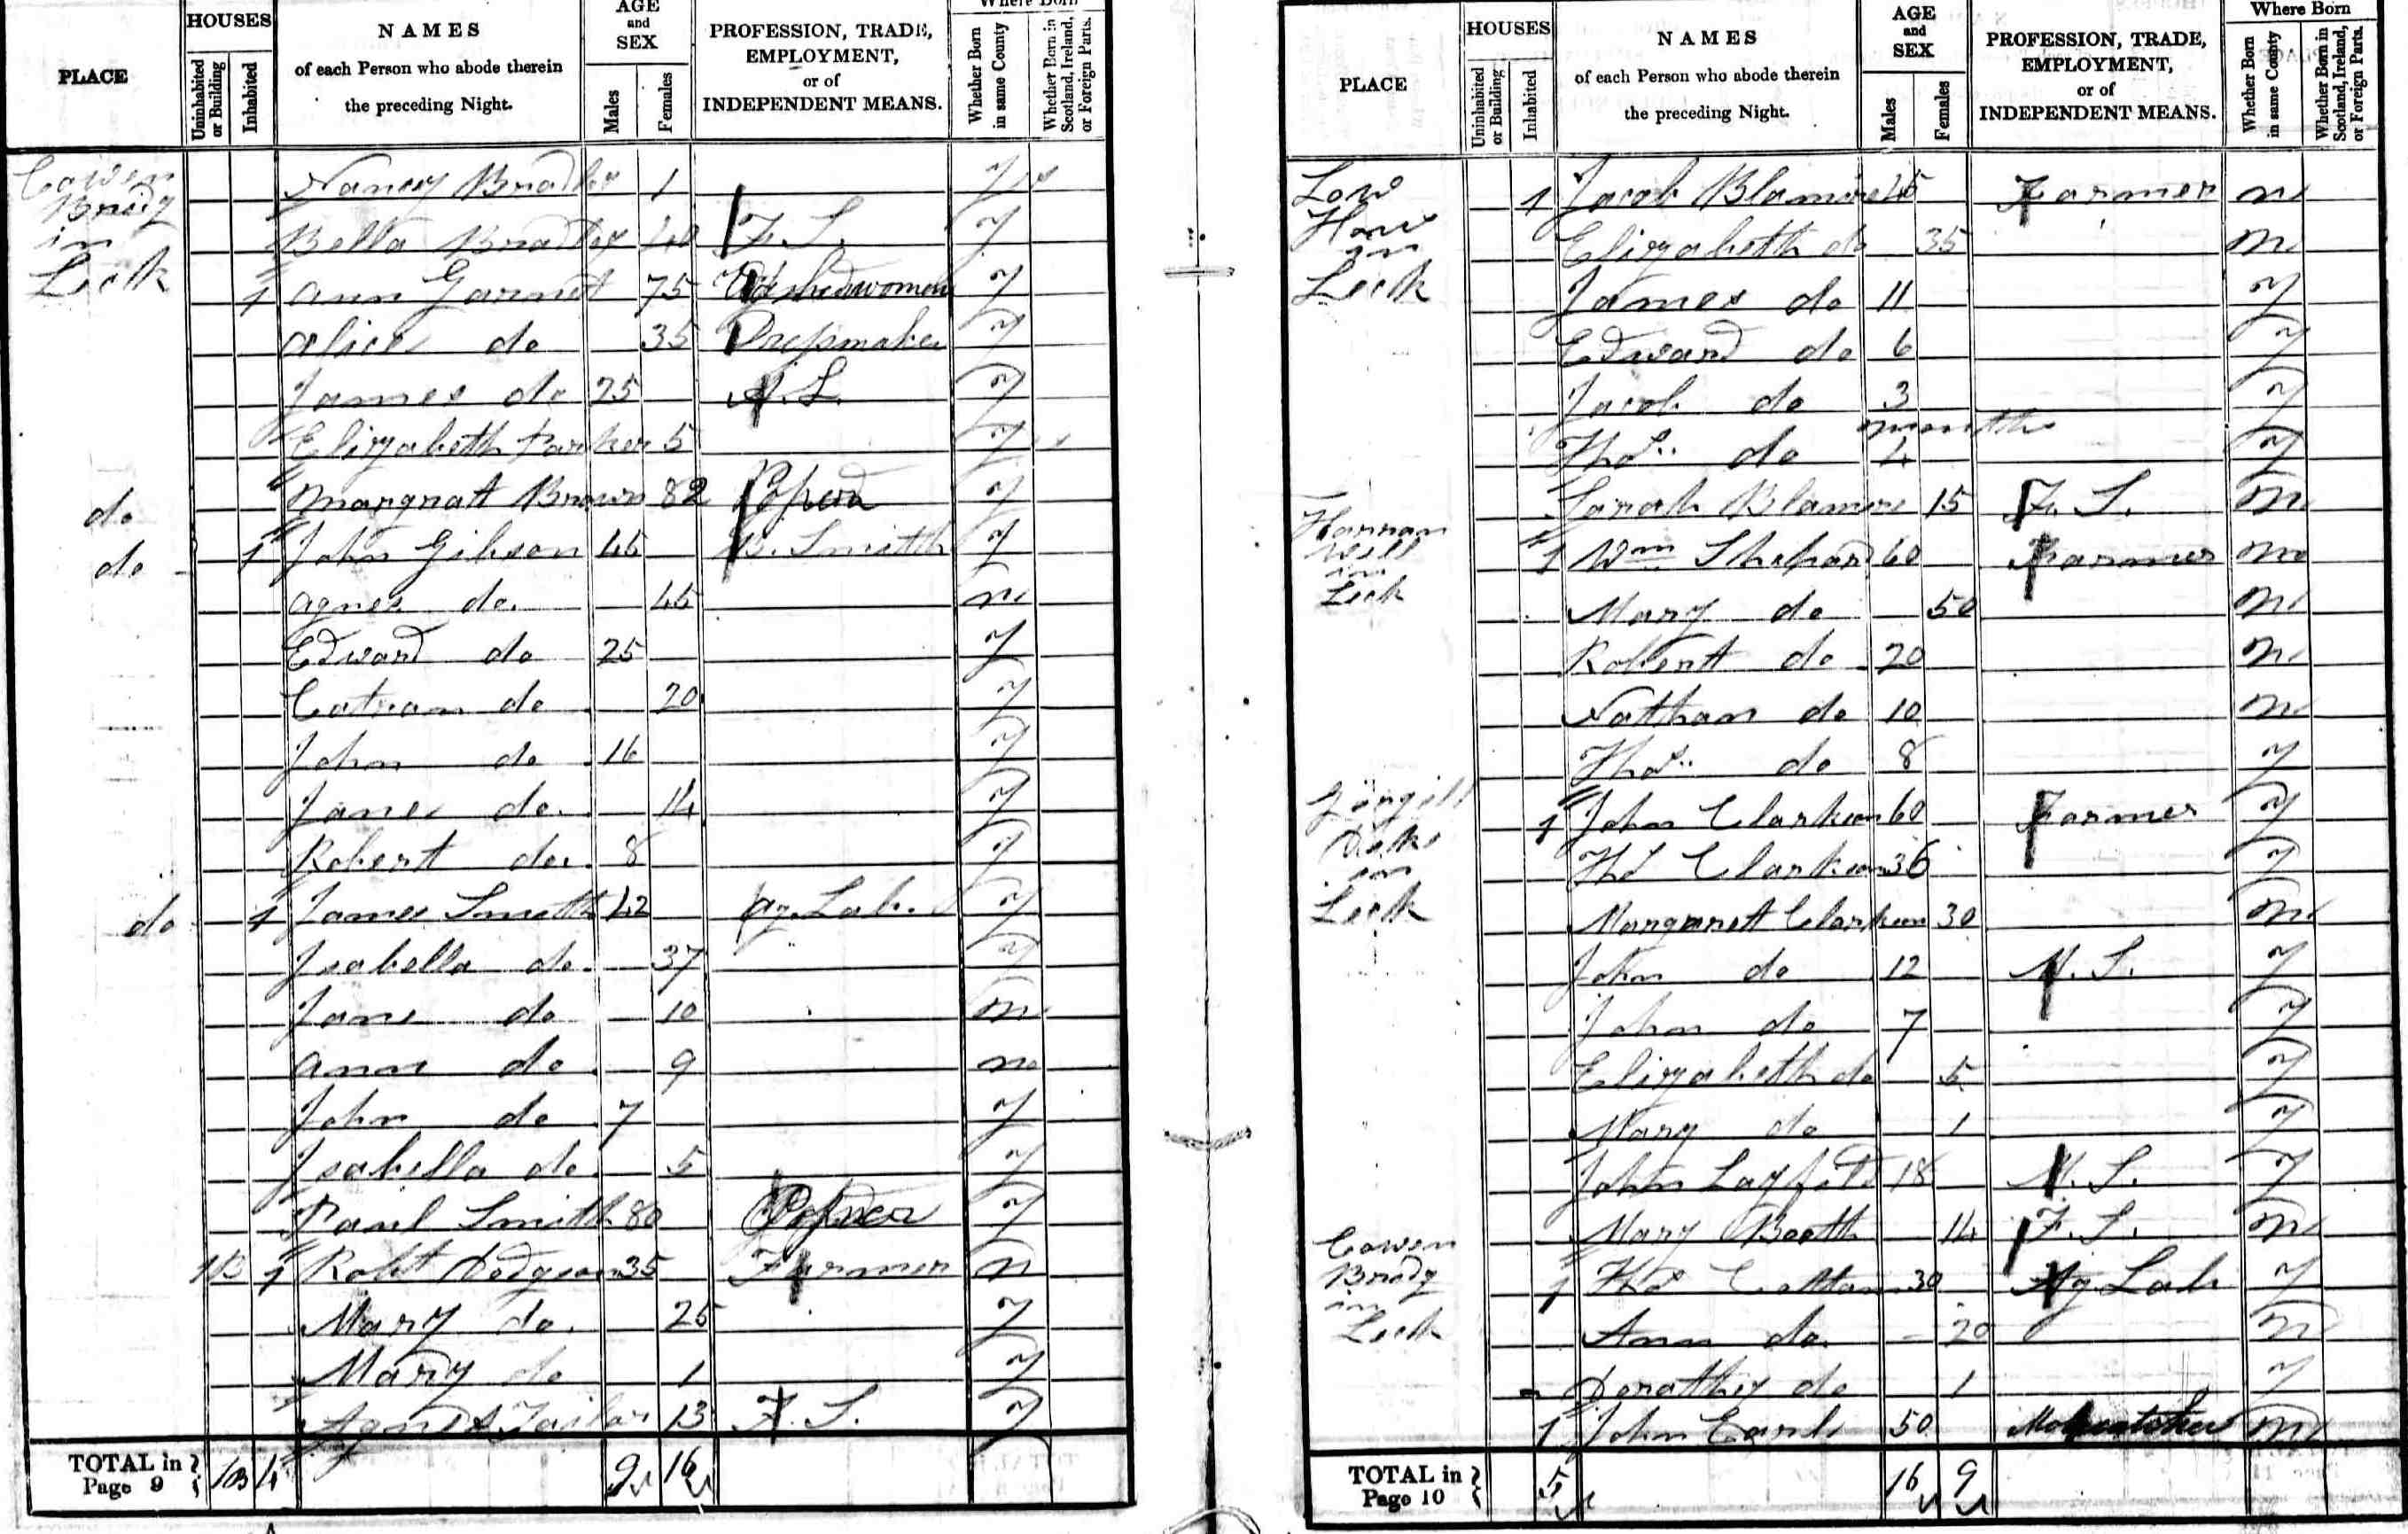 PLACE
HOUSES
Uninhabited or Building
Inhabited
NAMES
of each Person who abode therein
the preceding Night.
AGE
and
SEX
Males
Females
PROFESSION, TRADE,
EMPLOYMENT,
or of
INDEPENDENT MEANS.
Where Born
Whether Born in same County
Whether Born in Scotland, Ireland, or Foreign Parts.
Cowen Bridg in Leck
Nancy Bradley 1 y
Bella Bradley 40 F. S. y
1 Ann Garnet 75 y
Alice do 35 Dressmaker y
James do 25 y
Elizabeth Parker 5 y
do Margratt Brown 82 y
do 1 John Gibson 45 B. Smith y
Agnes do. 45 n
Edward do 25 y
Catran do 20 y
John do 16 y
Jane do. 14 y
Robert do. 8 y
do 1 James Smith 42 Ag. Lab. y
Isabella do. 37 y
Jane do 10 n
Ann do 9 no
John do 7 y
Isabella do. 5 y
Paul Smith 80 y
1B 1 Robt Dodgson 35 Farmer n
Mary do. 25 y
Mary do 1 y
Agnes Tailor 13 F. S. y
TOTAL in Page 9 1B 4 9 16
PLACE
HOUSES
Uninhabited or Building
Inhabited
NAMES
of each Person who abode therein
the preceding Night.
AGE
and
SEX
Males
Females
PROFESSION, TRADE,
EMPLOYMENT,
or of
INDEPENDENT MEANS.
Where Born
Whether Born in same County
Whether Born in Scotland, Ireland, or Foreign Parts.
Low in Leck
1 Jacob Blamire 45 Farmer n
Elizabeth do 35 n
James do 11 y
Edward do 6 y
Jacob do 3 y
months
Thos do 4 y
Sarah Blamire 15 F. S. n
Well in Leck
1 Wm Shepard 60 Farmer no
Mary do 50 n
Robert do 20 n
Nathan do 10 n
Thos do 8 y
in Leck
1 John Clarkson 60 Farmer y
Thos Clarkson 36 y
Margarett Clarkson 30 n
John do 12 M. S. y
John do 7 y
Elizabeth do 5 y
Mary do 1 y
John Layfild 18 M. S. y
Mary Booth 14 F. S. n
Cowen Bridg in Leck
1 Thos Cottam 30 Ag Lab y
Ann do. 20 n
Dorathy do 1 y
1 John Earl 50 n
TOTAL in Page 10 5 16 9